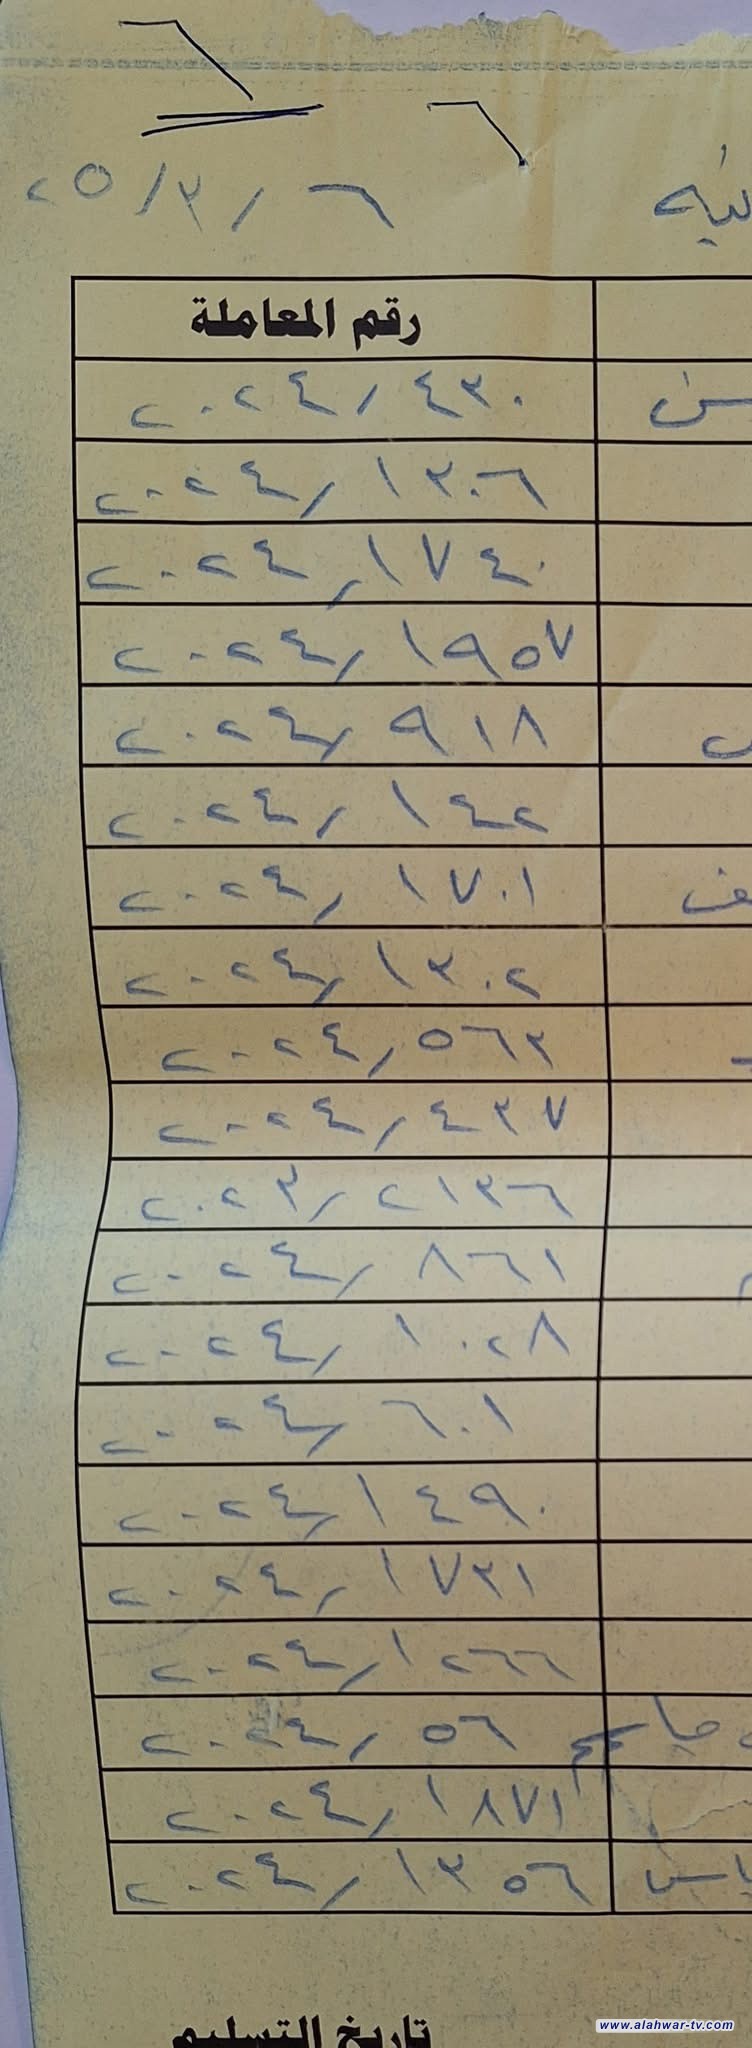 ٦
٦
٢٥/٣/٦
رقم المعاملة
٢٠٢٤/٤٣٠
٢٠٢٤/١٣٠٦
٢٠٢٤/١٧٤٠
٢٠٢٤/١٩٥٧
٢٠٢٤/٩١٨
٢٠٢٤/١٤٢
٢٠٢٤/١٧٠١
٢٠٢٤/١٣٠٢
٢٠٢٤/٥٦٣
٢٠٢٤/٤٣٧
٢٠٢٣/٢١٣٦
٢٠٢٤/٨٦١
٢٠٢٤/١٠٢٨
٢٠٢٤/٦٠١
٢٠٢٤/١٤٩٠
٢٠٢٤/١٧٣١
٢٠٢٤/١٢٦٦
٢٠٢٤/٥٦
٢٠٢٤/١٨٧١
٢٠٢٤/١٣٥٦
تاريخ التسليم
www.alahwar-tv.com